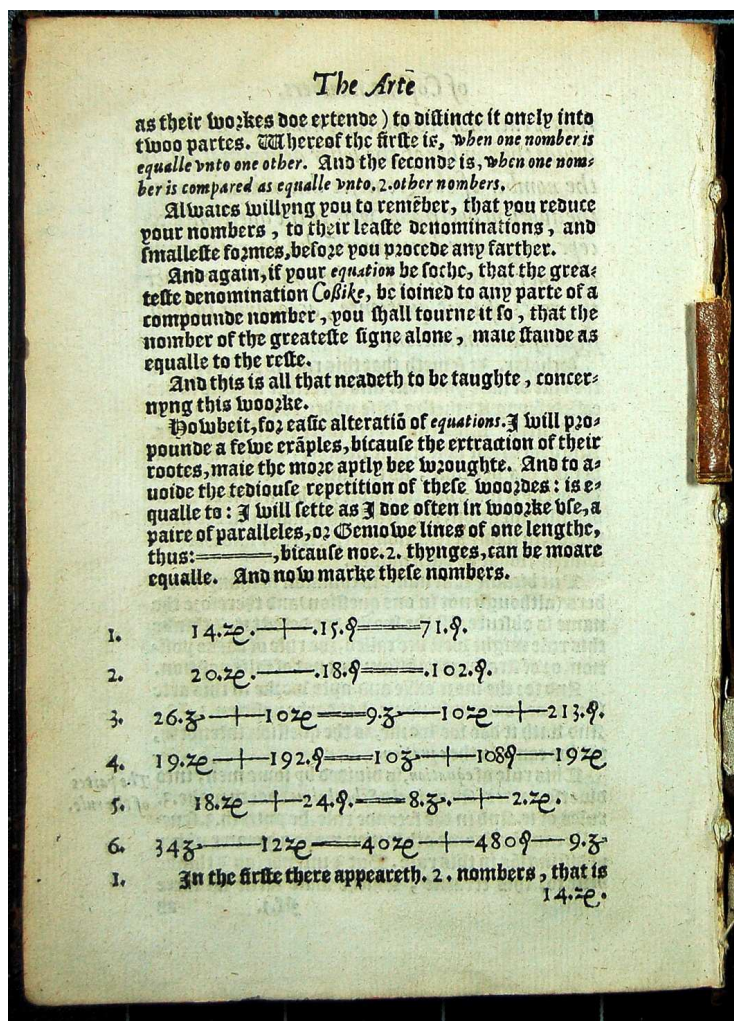 The Arte
as their workes doe extende) to distincte it onely into
twoo partes. Whereof the firste is, when one nomber is
equalle vnto one other. And the seconde is, when one nom-
ber is compared as equalle vnto .2. other nombers.
Alwaies willyng you to remēber, that you reduce
your nombers, to their leaste denominations, and
smalleste formes, before you procede any farther.
And again, if your equation be soche, that the grea-
teste denomination Coßike, be ioined to any parte of a
compounde nomber, you shall tourne it so, that the
nomber of the greateste signe alone, maie stande as
equalle to the reste.
And this is all that neadeth to be taughte, concer-
nyng this woorke.
Howbeit, for easie alteratiō of equations. I will pro-
pounde a fewe exāples, bicause the extraction of their
rootes, maie the more aptly bee wroughte. And to a-
uoide the tediouse repetition of these woordes: is e-
qualle to: I will sette as I doe often in woorke vse, a
paire of paralleles, or Gemowe lines of one lengthe,
thus: ═════, bicause noe .2. thynges, can be moare
equalle. And now marke these nombers.
1. 14.ꝛe.—+—.15.ꝯ═════71.ꝯ.
2. 20.ꝛe.———.18.ꝯ═════.102.ꝯ.
3. 26.ʒ—+—10ꝛe═════9.ʒ———10ꝛe—+—213.ꝯ.
4. 19.ꝛe—+—192.ꝯ═════10ʒ—+—108ꝯ———19ꝛe
5. 18.ꝛe—+—24.ꝯ.═════8.ʒ.—+—2.ꝛe.
6. 34ʒ———12ꝛe═════40ꝛe—+—480ꝯ———9.ʒ
1. In the firste there appeareth. 2. nombers, that is
14.ꝛe.